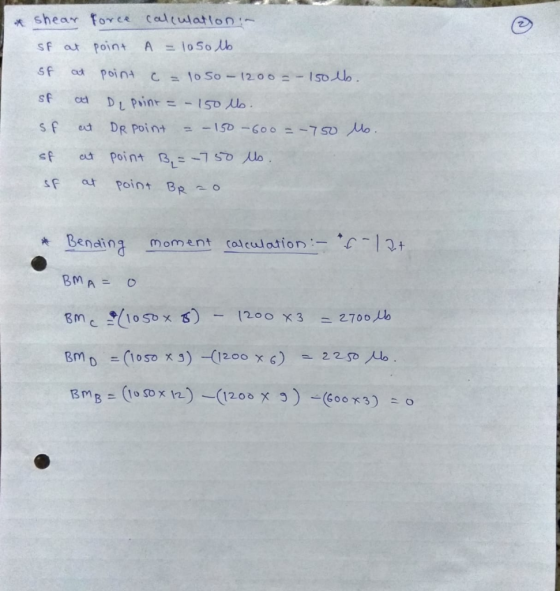 ②
* Shear Force calculation:-
SF at point A = 1050 lb
SF at point C = 1050 - 1200 = -150 lb.
SF at DL point = -150 lb.
SF at DR point = -150 - 600 = -750 lb.
SF at point BL = -750 lb.
SF at point BR = 0
* Bending moment calculation:-
BMA = 0
BMC = (1050 × 6) - 1200 × 3 = 2700 lb
BMD = (1050 × 9) - (1200 × 6) = 2250 lb.
BMB = (1050 × 12) - (1200 × 9) - (600 × 3) = 0